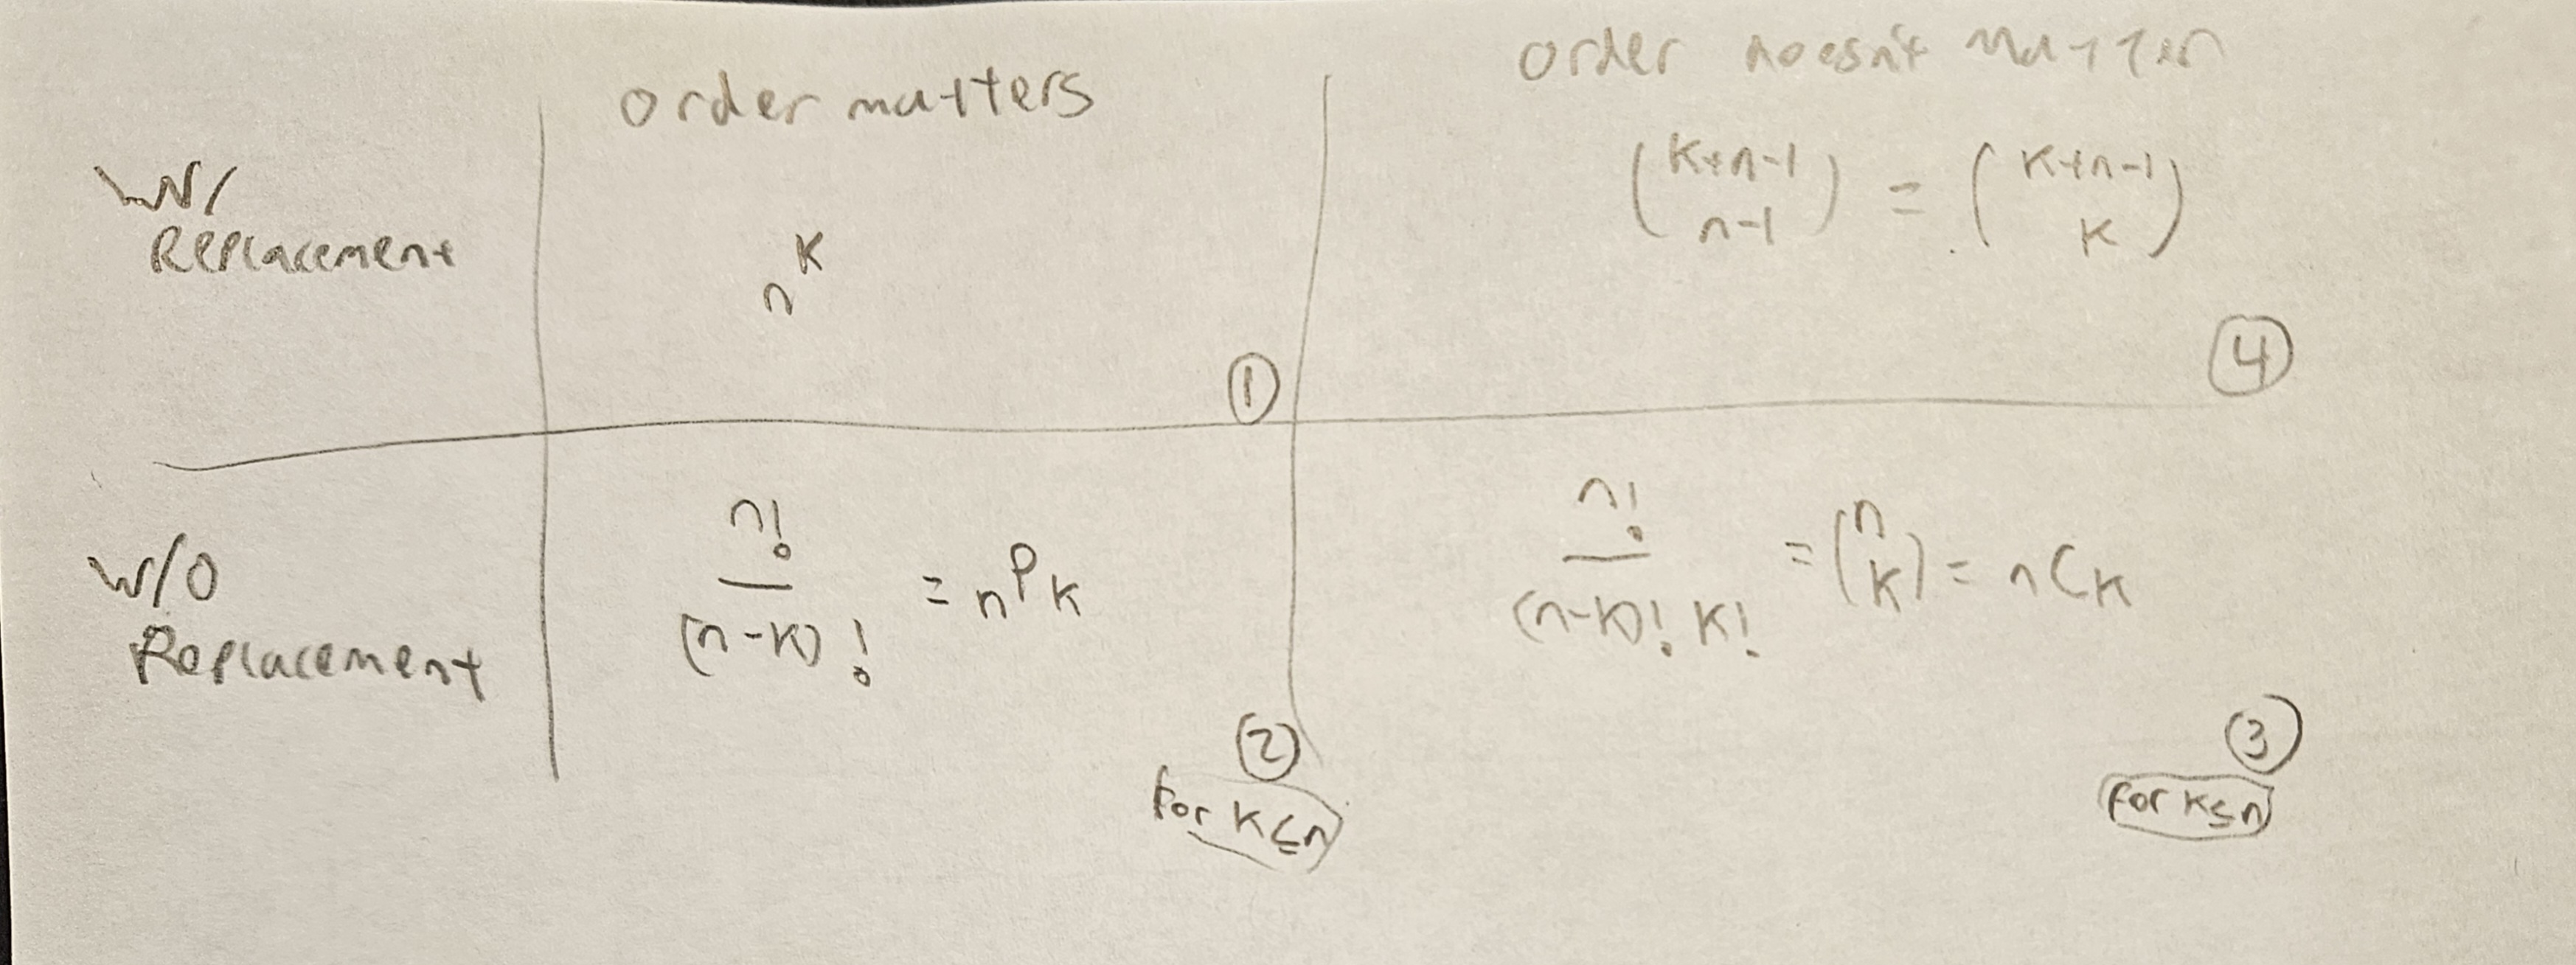 order matters
order doesn't matter
W/
Replacement
n^k
(k+n-1 n-1) = (k+n-1 k)
①
④
W/O
Replacement
n!/(n-k)! = nPk
n!/(n-k)! k! = (n k) = nCk
②
for k≤n
③
for k≤n